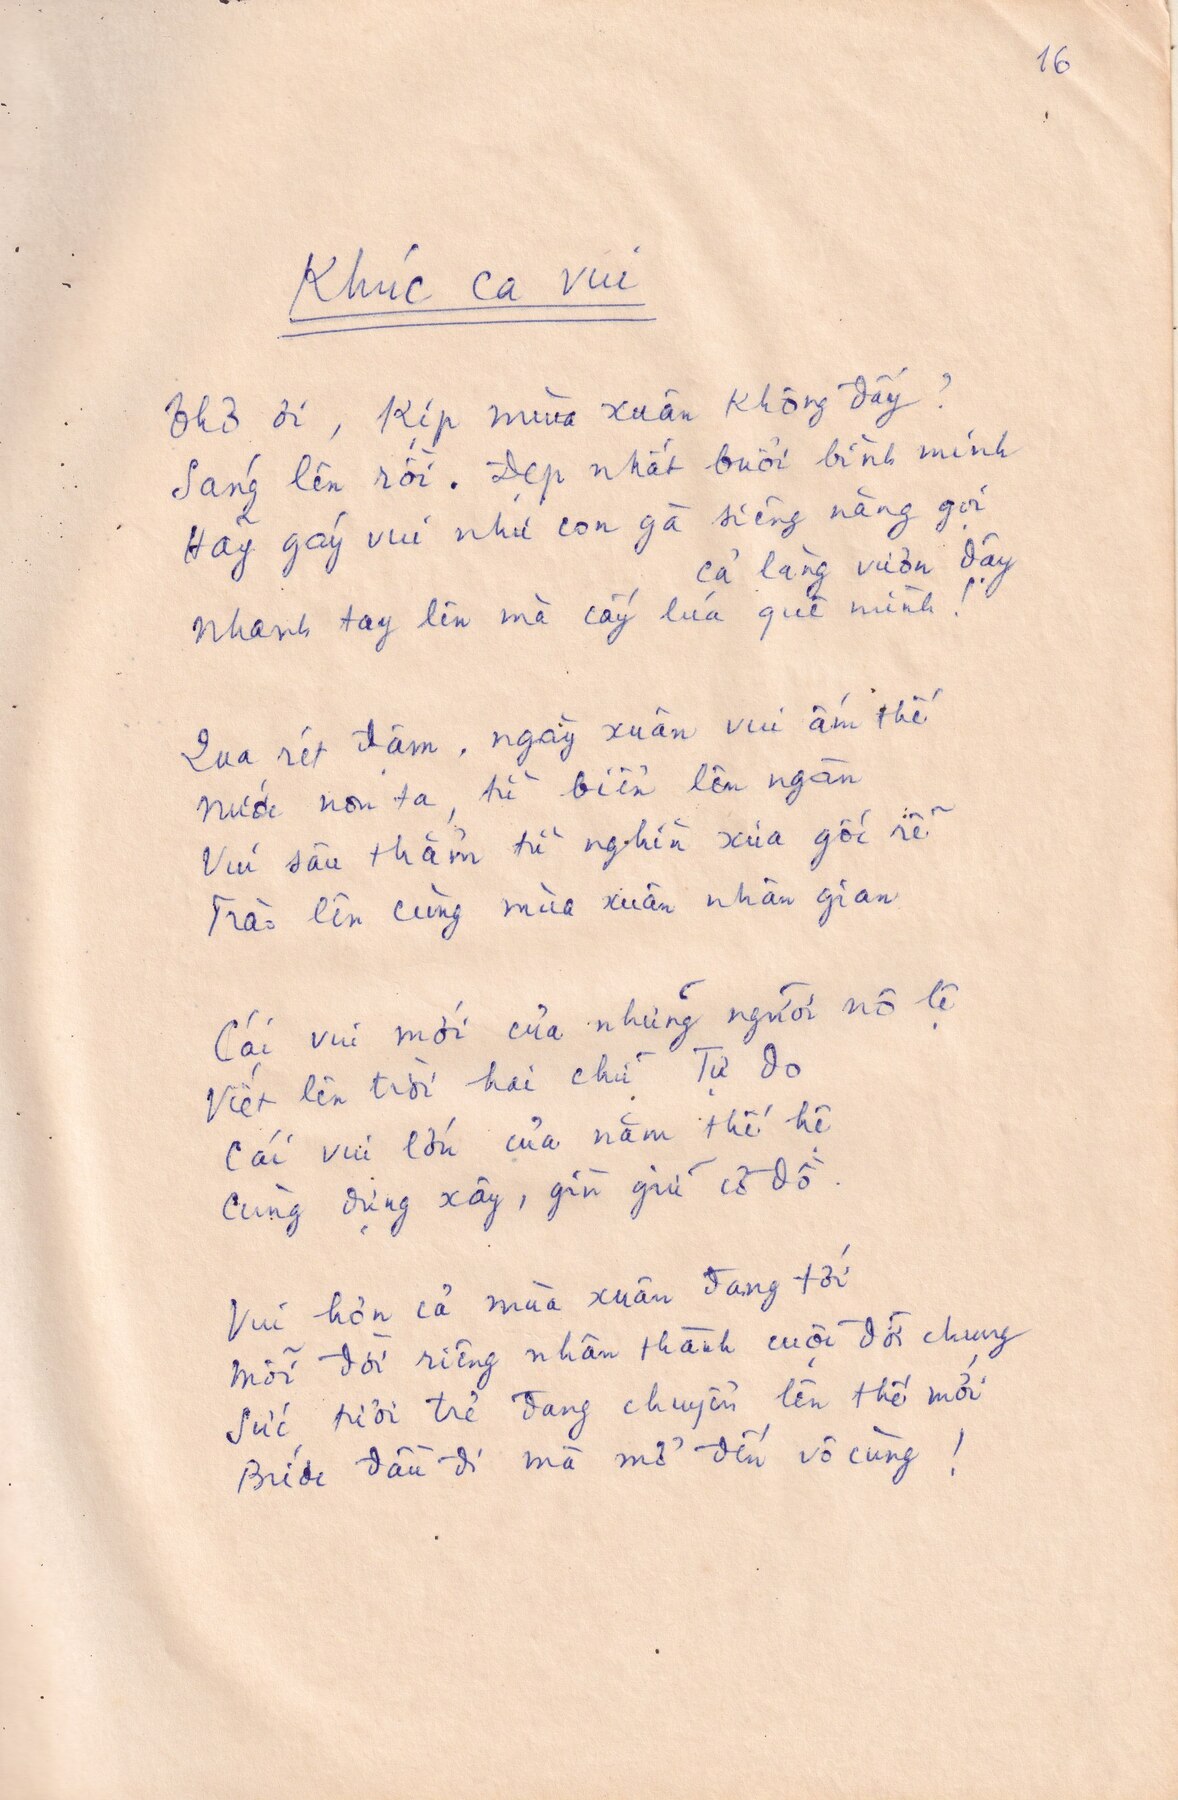 16
Khúc ca vui
Thơ ơi, kịp mùa xuân không đấy?
Sáng lên rồi. Đẹp nhất buổi bình minh
Hãy gáy vui như con gà siêng năng gọi
cả làng vươn dậy
Nhanh tay lên mà cấy lúa quê mình!
Qua rét đậm, ngày xuân vui ấm thế
Nước non ta, từ biển lên ngàn
Vui sâu thẳm từ nghìn xưa gốc rễ
Trào lên cùng mùa xuân nhân gian
Cái vui mới của những người nô lệ
Viết lên trời hai chữ Tự do
Cái vui lớn của năm thế hệ
Cùng dựng xây, gìn giữ cơ đồ.
Vui hơn cả mùa xuân đang tới
Mỗi đời riêng nhân thành cuộc đời chung
Sức tươi trẻ đang chuyển lên thế mới
Bước đầu đi mà mở đến vô cùng!